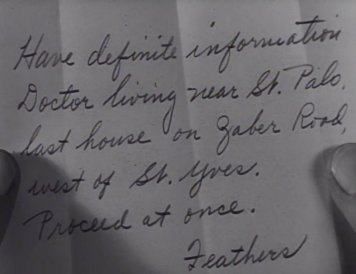 Have definite information
Doctor living near St. Palo,
last house on Zaber Road,
west of St. Yves.
Proceed at once.
Feathers